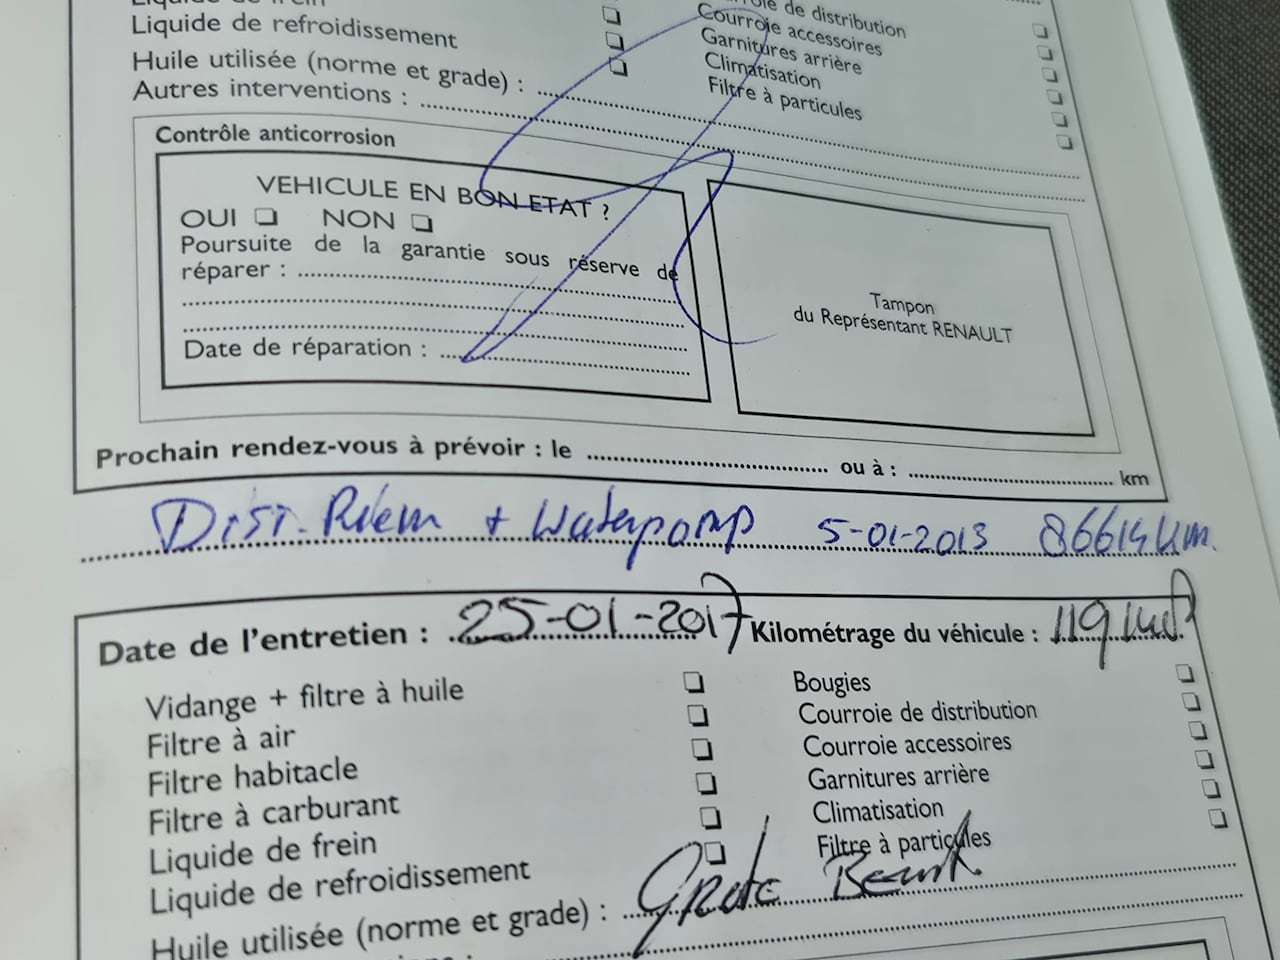 Liquide de refroidissement
Huile utilisée (norme et grade) :
Autres interventions :
de distribution
Courroie accessoires
Garnitures arrière
Climatisation
Filtre à particules
Contrôle anticorrosion
VEHICULE EN BON ETAT ?
OUI NON
Poursuite de la garantie sous réserve de
réparer :
Date de réparation :
Tampon
du Représentant RENAULT
Prochain rendez-vous à prévoir : le ou à : km
Dist. Riem + Waterpomp 5-01-2013 86614 km.
Date de l'entretien : 25-01-2017 Kilométrage du véhicule :
Vidange + filtre à huile
Filtre à air
Filtre habitacle
Filtre à carburant
Liquide de frein
Liquide de refroidissement
Huile utilisée (norme et grade) : Grote Beurt
Bougies
Courroie de distribution
Courroie accessoires
Garnitures arrière
Climatisation
Filtre à particules